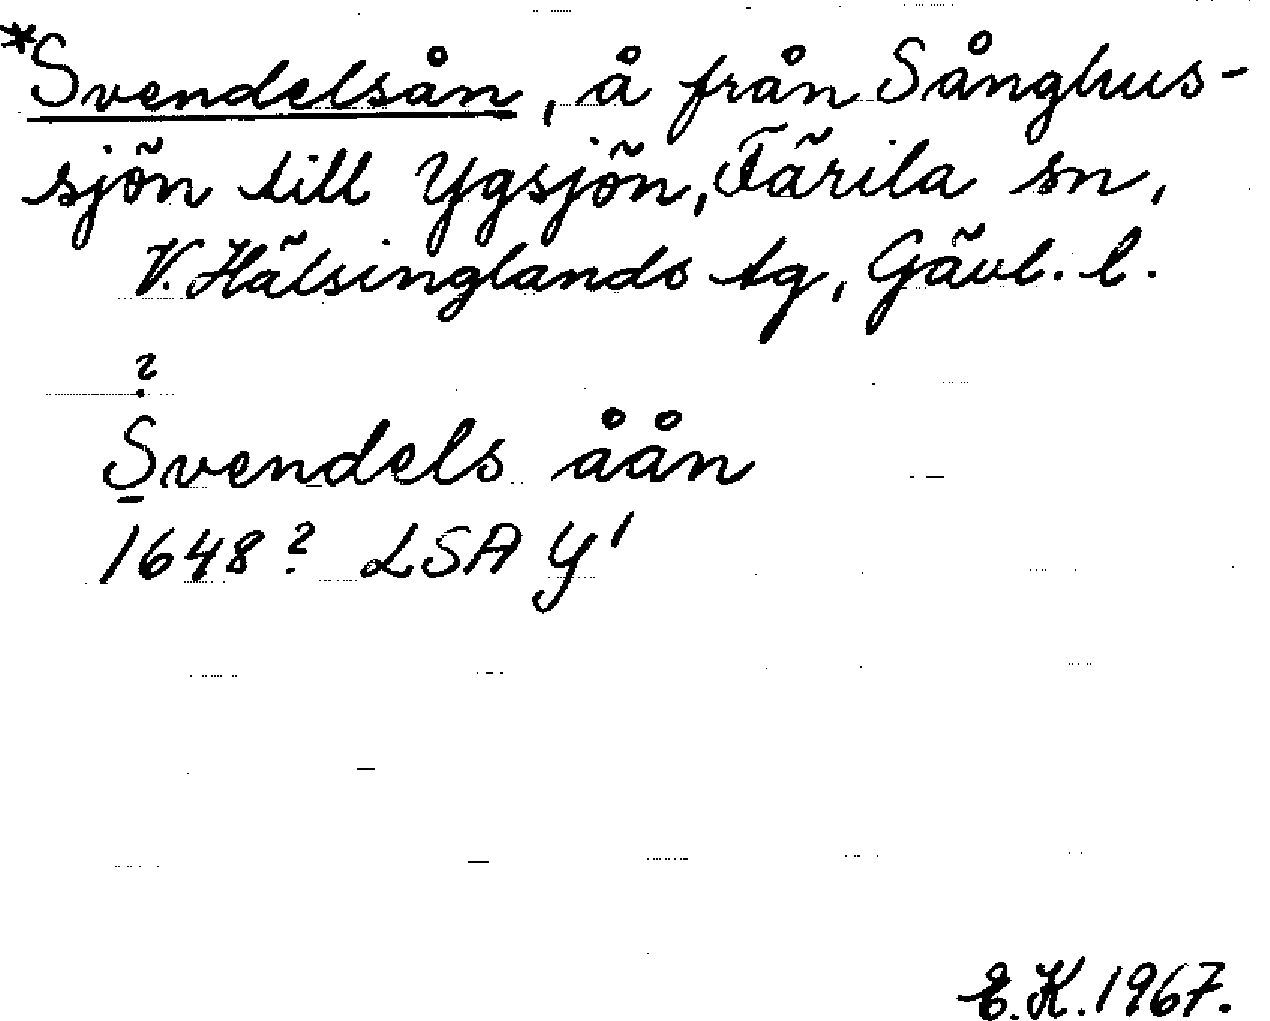 *Svendelsån, å från Sånghus-
sjön till Ygsjön, Färila sn,
V. Hälsinglands tg, Gävl. l.
?
Svendels åån
1648? LSA Y1
E.K. 1967.